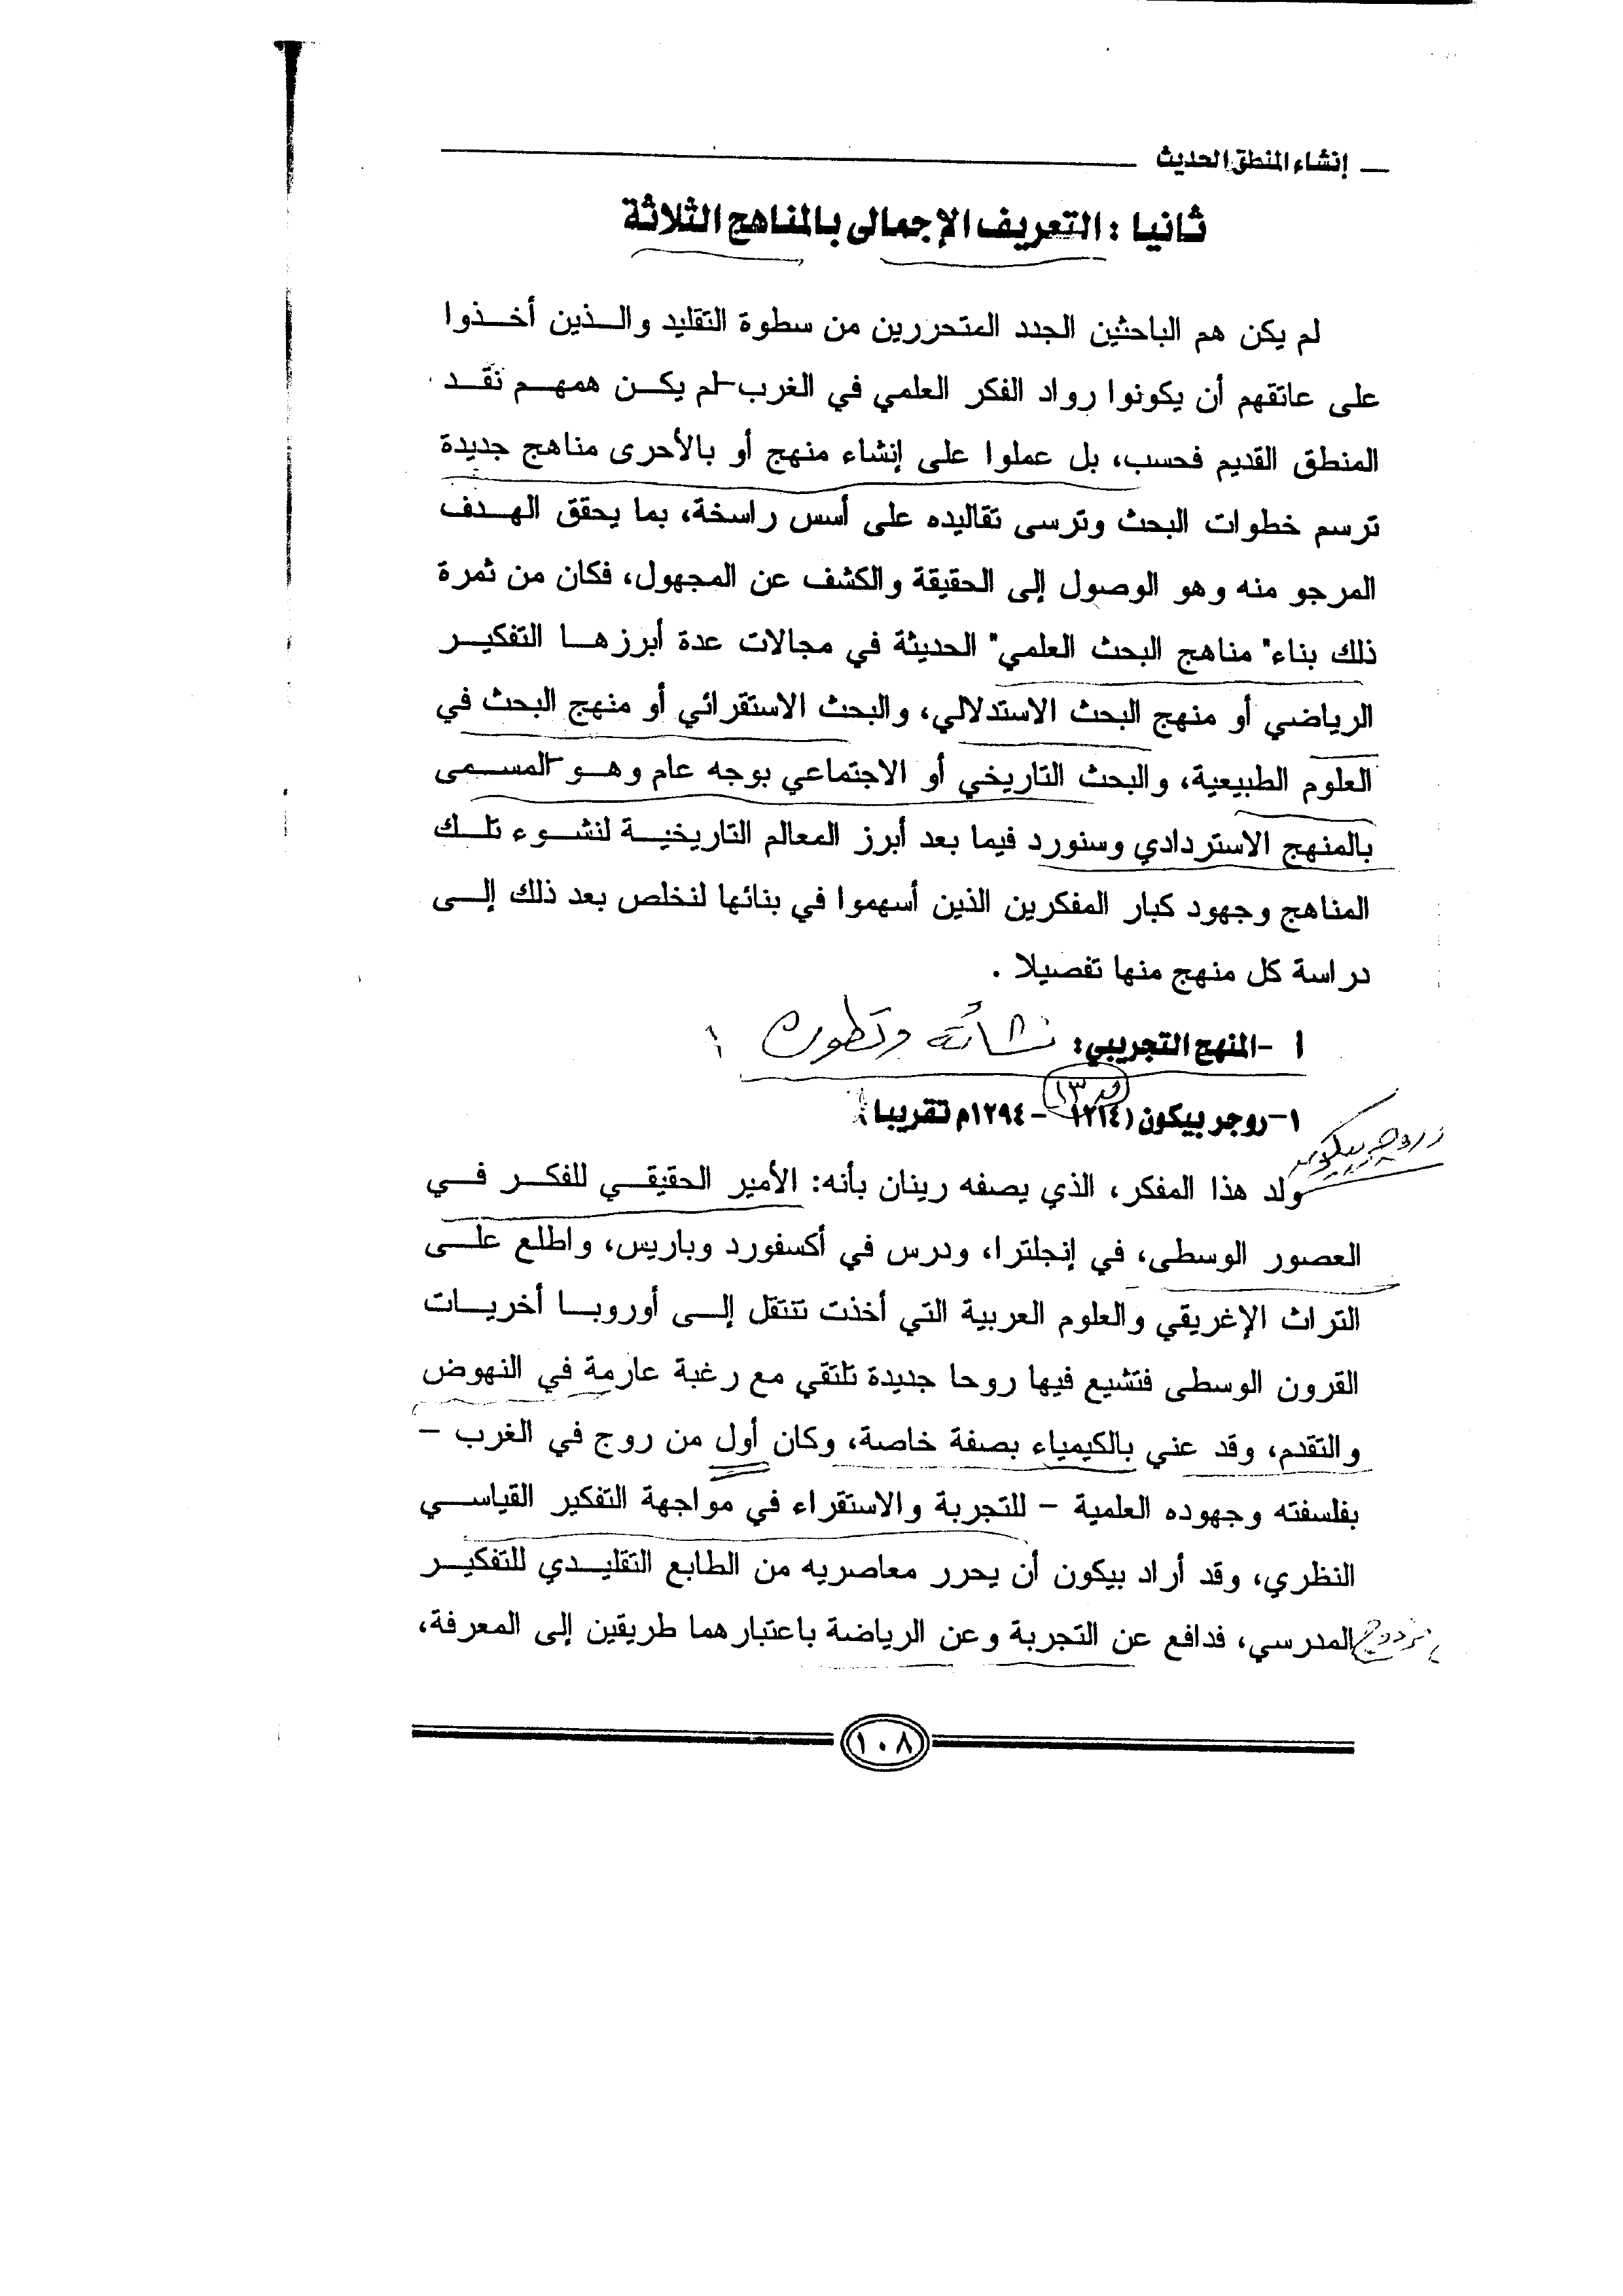 إنشاء المنطق الحديث
ثانيا : التعريف الإجمالى بالمناهج الثلاثة
لم يكن هم الباحثين الجدد المتحررين من سطوة التقليد والـذين أخـذوا
على عاتقهم أن يكونوا رواد الفكر العلمي في الغرب-لم يكـن همهـم نقـد
المنطق القديم فحسب، بل عملوا على إنشاء منهج أو بالأحرى مناهج جديدة
ترسم خطوات البحث وترسى تقاليده على أسس راسخة، بما يحقق الهـدف
المرجو منه وهو الوصول إلى الحقيقة والكشف عن المجهول، فكان من ثمرة
ذلك بناء" مناهج البحث العلمي" الحديثة في مجالات عدة أبرزهـا التفكيـر
الرياضي أو منهج البحث الاستدلالي، والبحث الاستقرائي أو منهج البحث في
العلوم الطبيعية، والبحث التاريخي أو الاجتماعي بوجه عام وهـو المسـمى
بالمنهج الاستردادي وسنورد فيما بعد أبرز المعالم التاريخيـة لنشـوء تلـك
المناهج وجهود كبار المفكرين الذين أسهموا في بنائها لنخلص بعد ذلك إلـى
دراسة كل منهج منها تفصيلا .
أ -المنهج التجريبي: نشأته وتطوره :
ق ١٣
١-روجر بيكون (١٢١٤ - ١٢٩٤م تقريبا):
روجر بيكون
ولد هذا المفكر، الذي يصفه رينان بأنه: الأمير الحقيقـي للفكـر فـي
العصور الوسطى، في إنجلترا، ودرس في أكسفورد وباريس، واطلع علـى
التراث الإغريقي والعلوم العربية التي أخذت تنتقل إلـى أوروبـا أخريـات
القرون الوسطى فتشيع فيها روحا جديدة تلتقي مع رغبة عارمة في النهوض
والتقدم، وقد عني بالكيمياء بصفة خاصة، وكان أول من روج في الغرب -
بفلسفته وجهوده العلمية - للتجربة والاستقراء في مواجهة التفكير القياسـي
النظري، وقد أراد بيكون أن يحرر معاصريه من الطابع التقليـدي للتفكيـر
المدرسي، فدافع عن التجربة وعن الرياضة باعتبارهما طريقين إلى المعرفة،
١٠٨